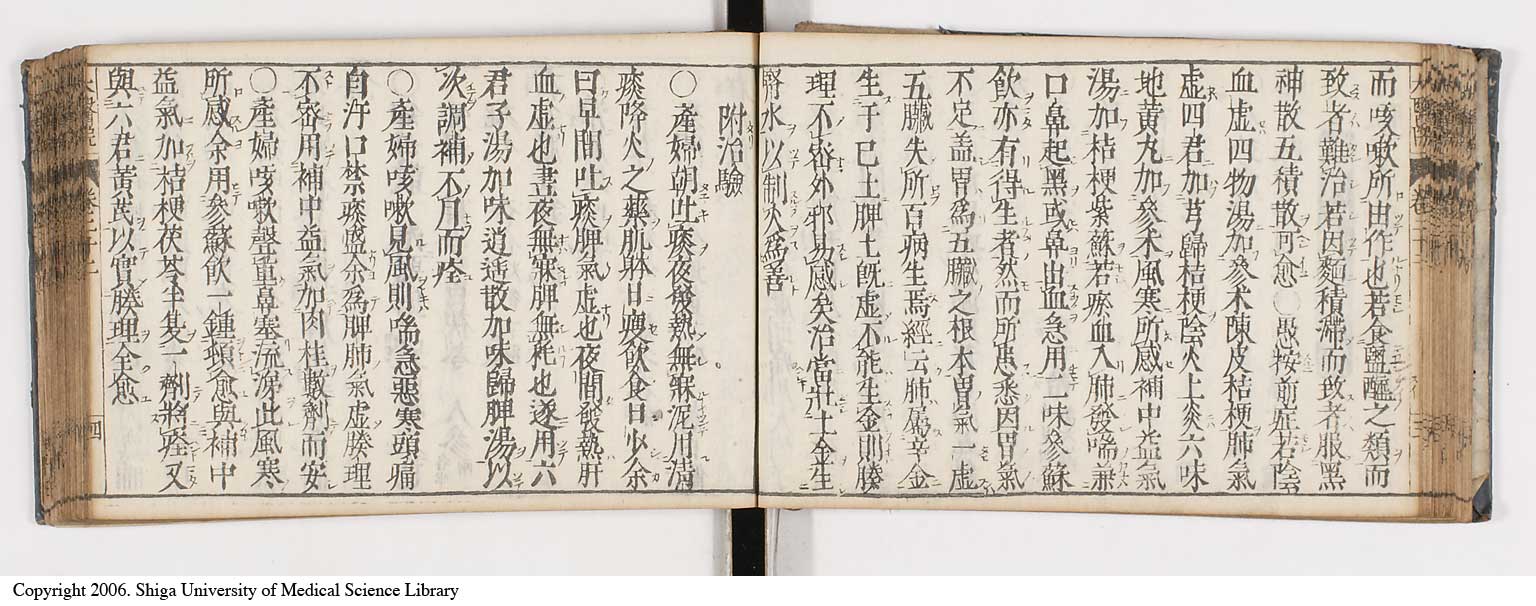 而咳嗽所由作也若食鹽醯之類而
致者難治若因麵積滯而致者服黑
神散五積散可愈○愚按前症若陰
血虛四物湯加參朮陳皮桔梗肺氣
虛四君加芎歸桔梗陰火上炎六味
地黃丸加參朮風寒所感補中益氣
湯加桔梗紫蘇若瘀血入肺發喘兼
口鼻起黑或鼻出血急用二味參蘇
飲亦有得生者然而所患悉因胃氣
不足盖胃爲五臟之根本胃氣一虛
五臟失所百病生焉經云肺屬辛金
生于己土脾土旣虛不能生金則腠
理不密外邪易感矣治當壯土金生
腎水以制火爲善
附治驗
○產婦朝吐痰夜發熱無寐泥用清
痰降火之藥肌躰日瘦飲食日少余
曰早間吐痰脾氣虛也夜間發熱肝
血虛也晝夜無寐脾無耗也遂用六
君子湯加味逍遙散加味歸脾湯以
次調補不月而痊
○產婦咳嗽見風則喘急惡寒頭痛
自汗口禁痰盛余爲脾肺氣虛腠理
不密用補中益氣加肉桂數劑而安
○產婦咳嗽聲重鼻塞流涕此風寒
所感余用參蘇飲一鍾頓愈與補中
益氣加桔梗茯苓半夏一劑將痊又
與六君黃芪以實腠理全愈
四
Copyright 2006. Shiga University of Medical Science Library